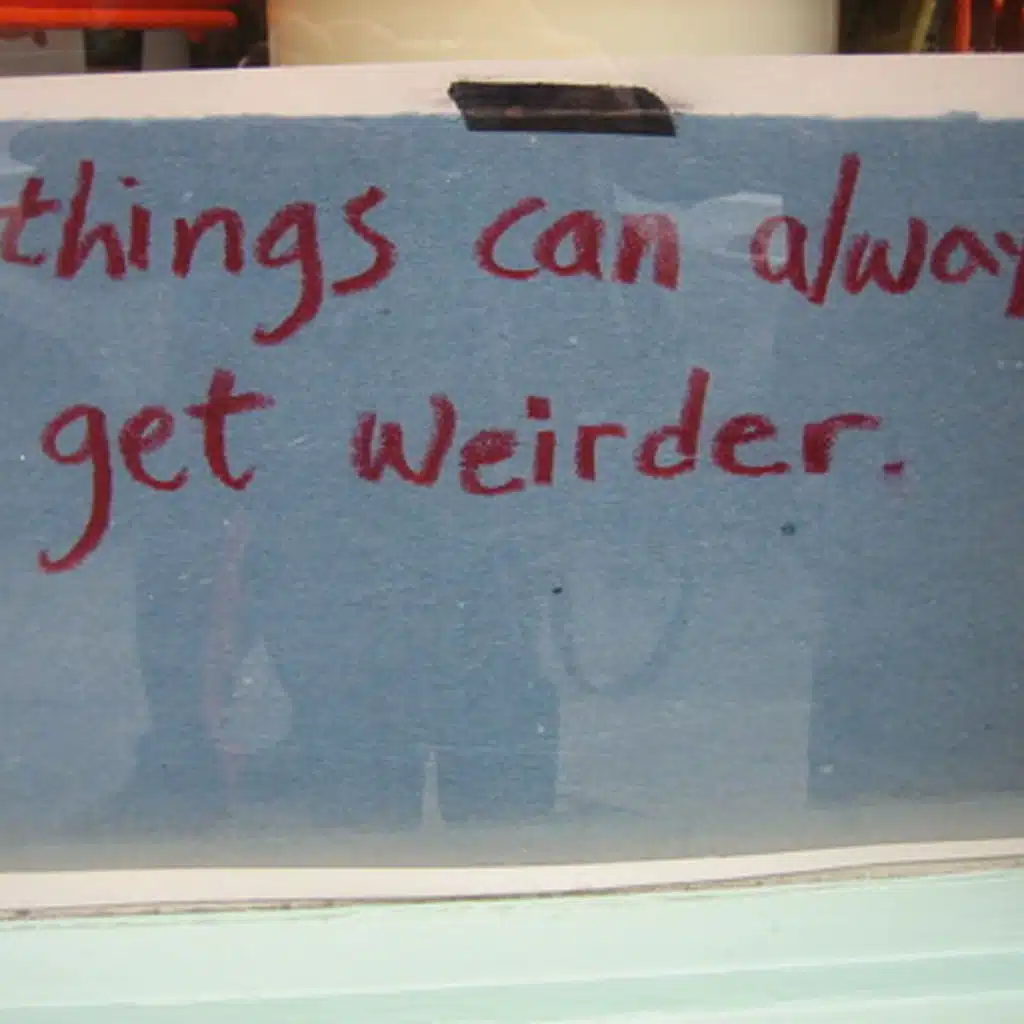 things can alway
get weirder.